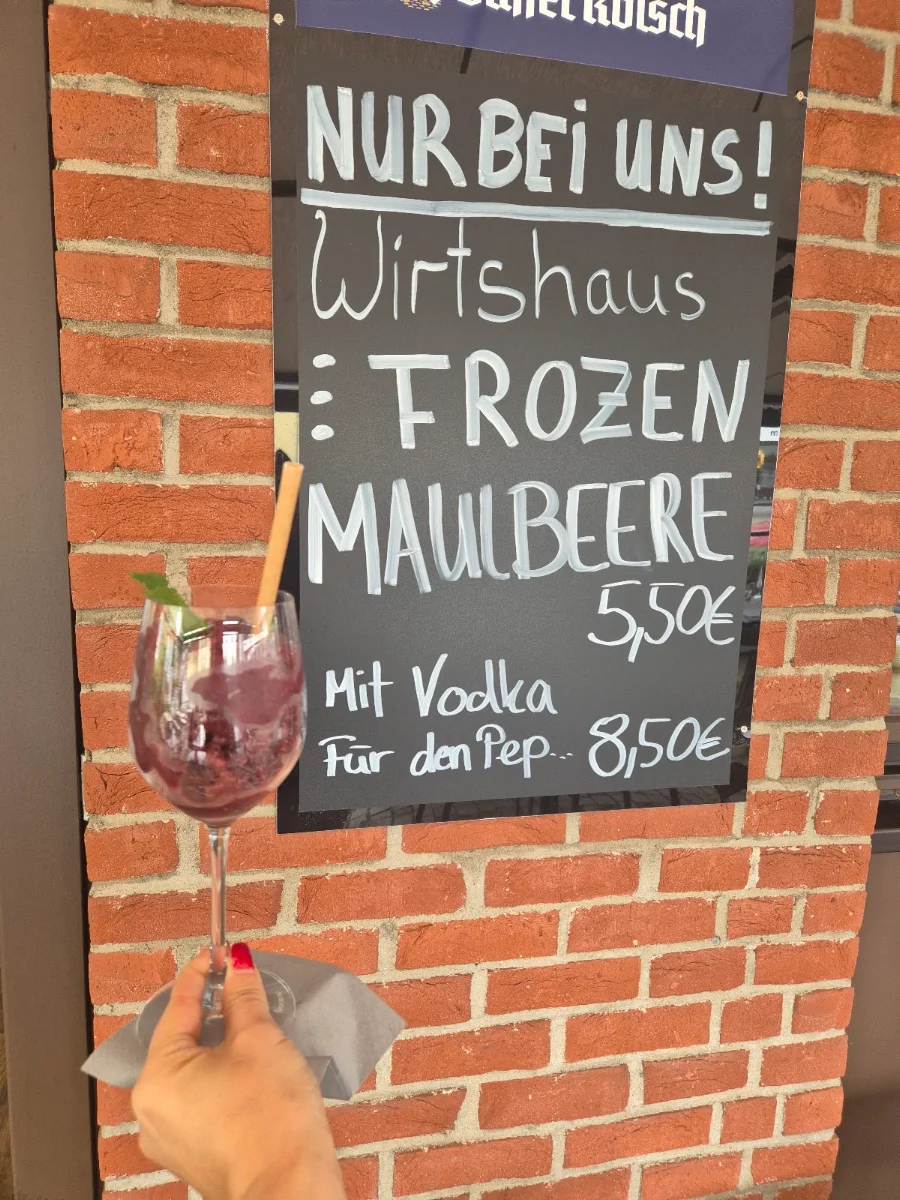 Kölsch
NUR BEi UNS!
Wirtshaus
: FROZEN
MAULBEERE
5,50€
Mit Vodka
Für den Pep... 8,50€